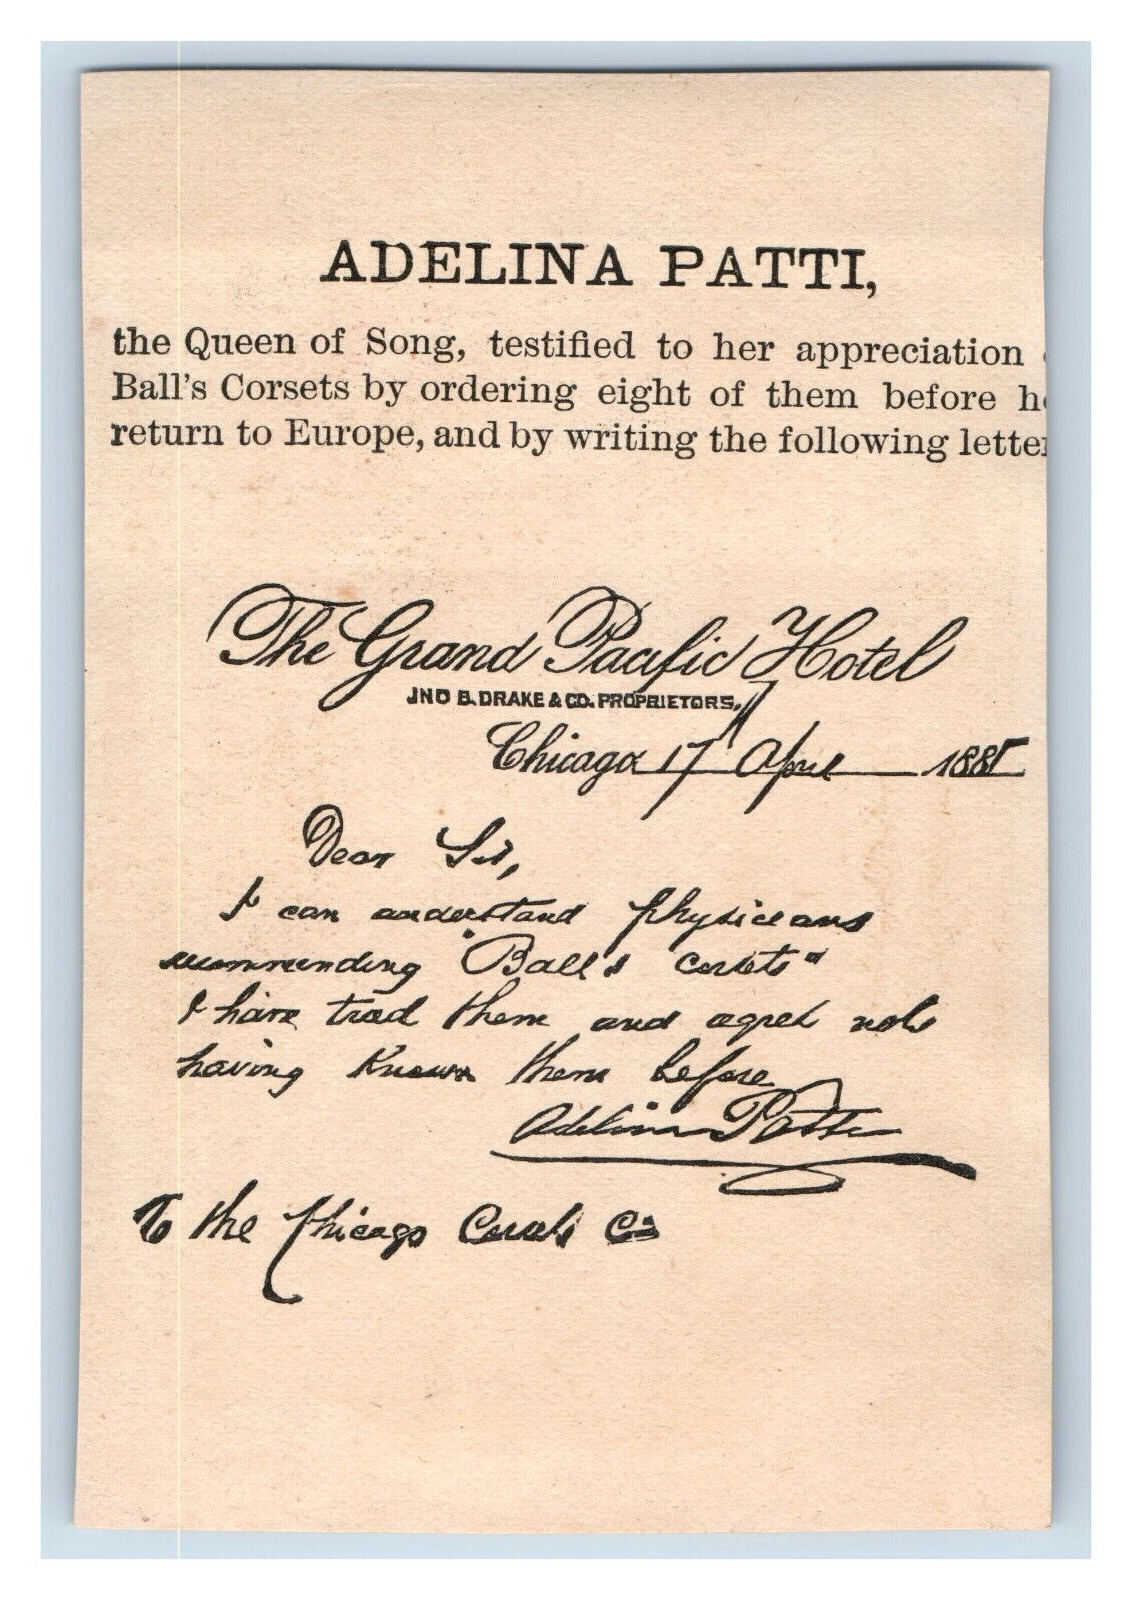 ADELINA PATTI,
the Queen of Song, testified to her appreciation
Ball's Corsets by ordering eight of them before he
return to Europe, and by writing the following letter
The Grand Pacific Hotel
JNO B. DRAKE & CO. PROPRIETORS.
Chicago 17 April 1885
Dear Sir,
I can understand physicians
recommending "Ball's corsets"
I have tried them and regret not
having known them before
Adelina Patti
To the Chicago Corset Co